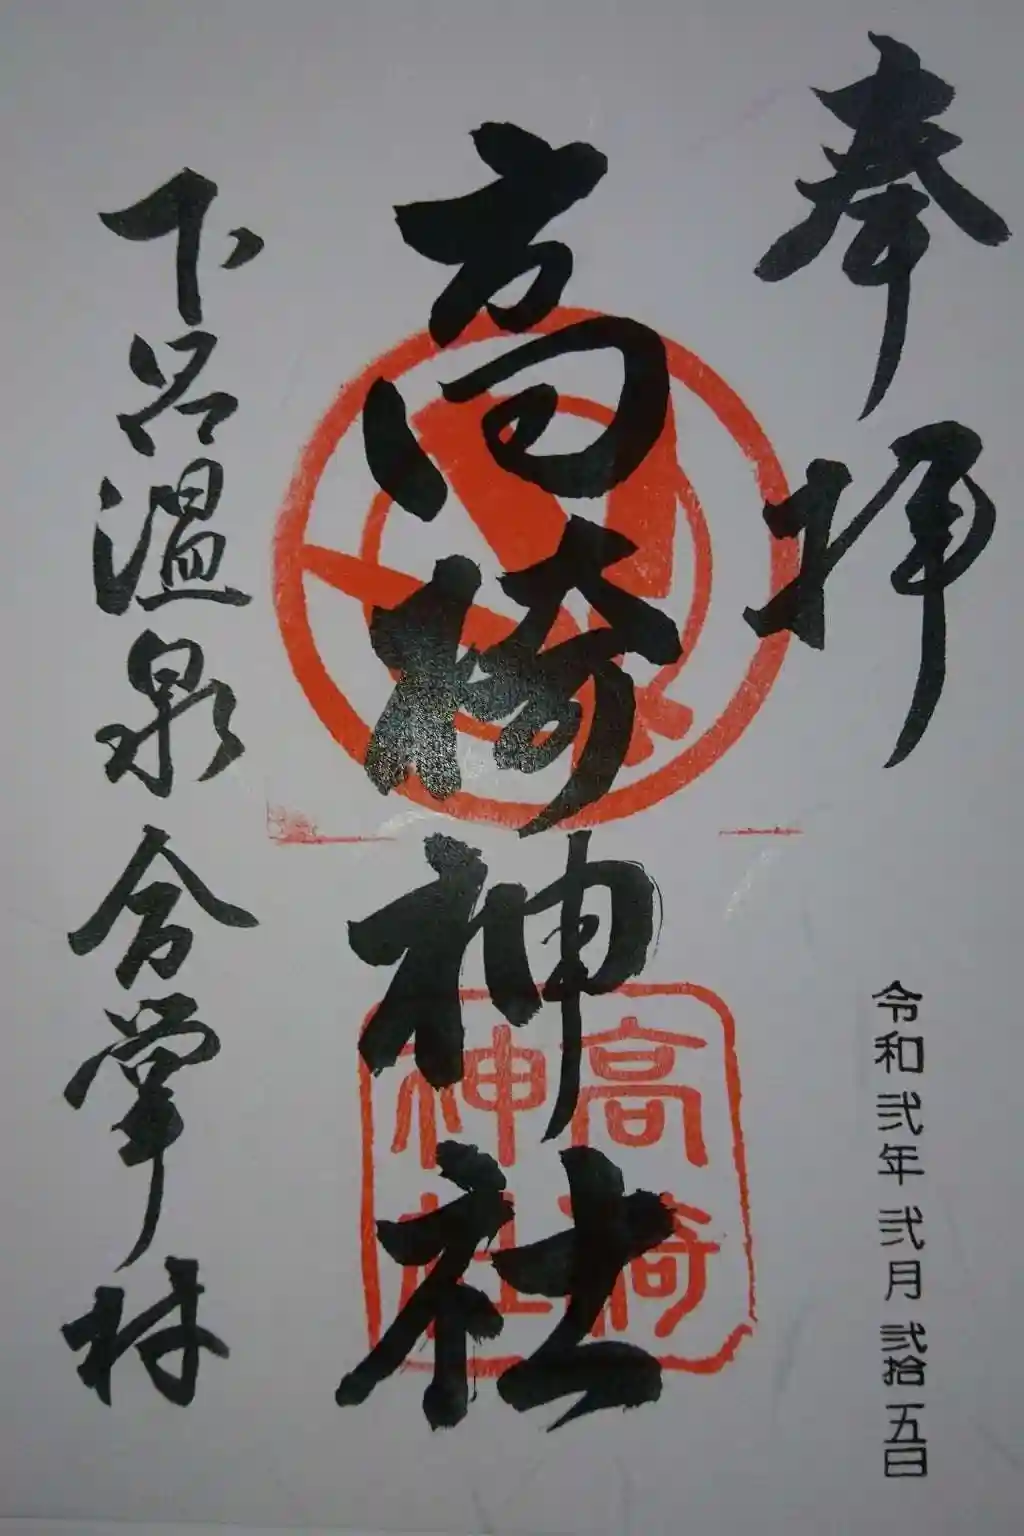 奉拝
令和弐年弐月弐拾五日
高椅神社
高椅
神社
下呂温泉合掌村